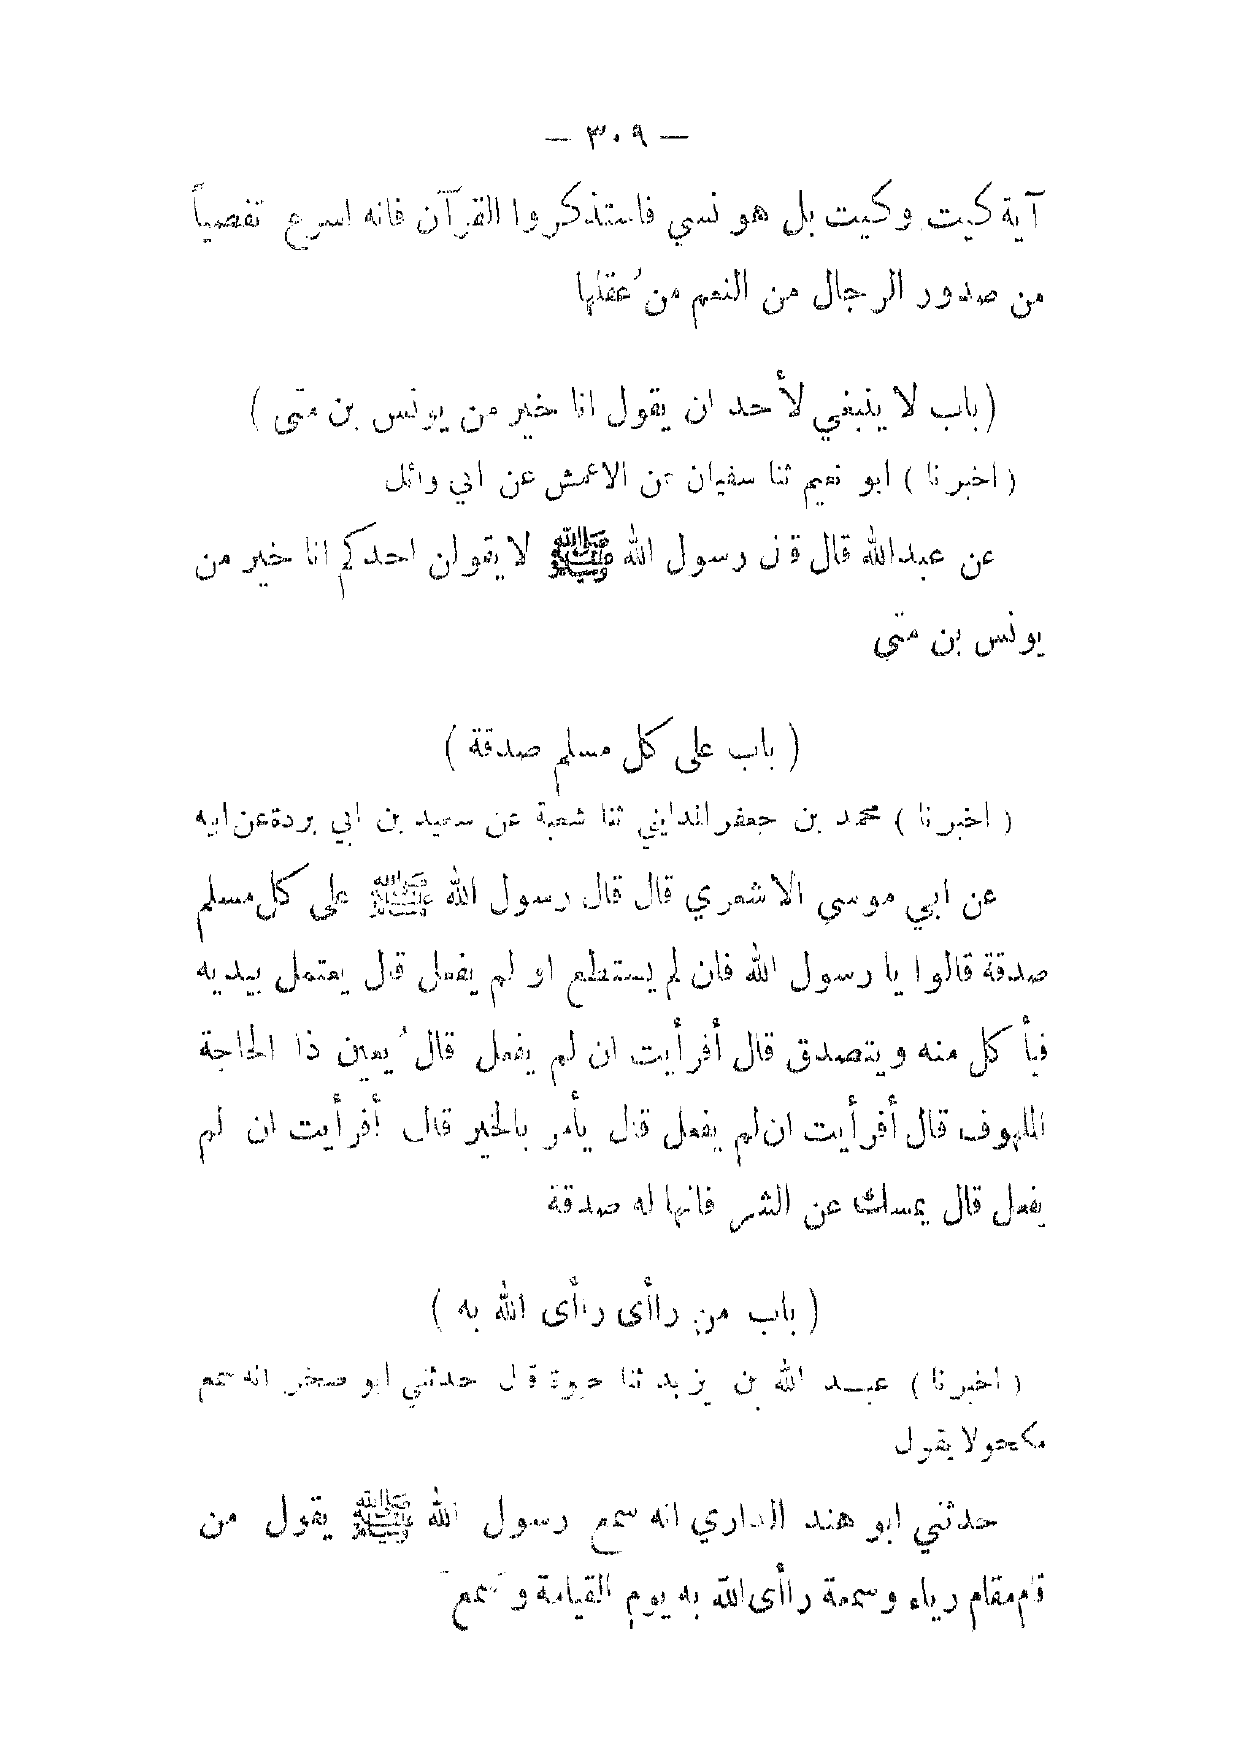 — ٣٠٩ —
آية كيت وكيت بل هو نسي فاستذكروا القرآن فانه اسرع تفصياً
من صدور الرجال من النعم من ُعقلها
(باب لا ينبغي لأحد ان يقول انا خير من يونس بن متى )
( اخبرنا ) ابو نعيم ثنا سفيان عن الاعمش عن ابي وائل
عن عبدالله قال قال رسول الله ﷺ لا يقولن احدكم انا خير من
يونس بن متى
( باب على كل مسلم صدقة )
( اخبرنا ) محمد بن جعفر المدايني ثنا شعبة عن سعيد بن ابي بردة عن ابيه
عن ابي موسي الاشعري قال قال رسول الله ﷺ على كل مسلم
صدقة قالوا يا رسول الله فان لم يستطع او لم يفعل قال يعتمل بيديه
فيأ كل منه ويتصدق قال أفرأيت ان لم يفعل قال ُيعين ذا الحاجة
الملهوف قال أفرأيت ان لم يفعل قال يأمر بالخير قال أفرأيت ان لم
يفعل قال يمسك عن الشر فانها له صدقة
( باب من راأى راأى الله به )
( اخبرنا ) عبد الله بن يزيد ثنا حيوة قال حدثني ابو صخر انه سمع
مكحولا يقول
حدثني ابو هند الداري انه سمع رسول الله ﷺ يقول من
قام مقام رياء وسمعة راأى الله به يوم القيامة و َسمع َ